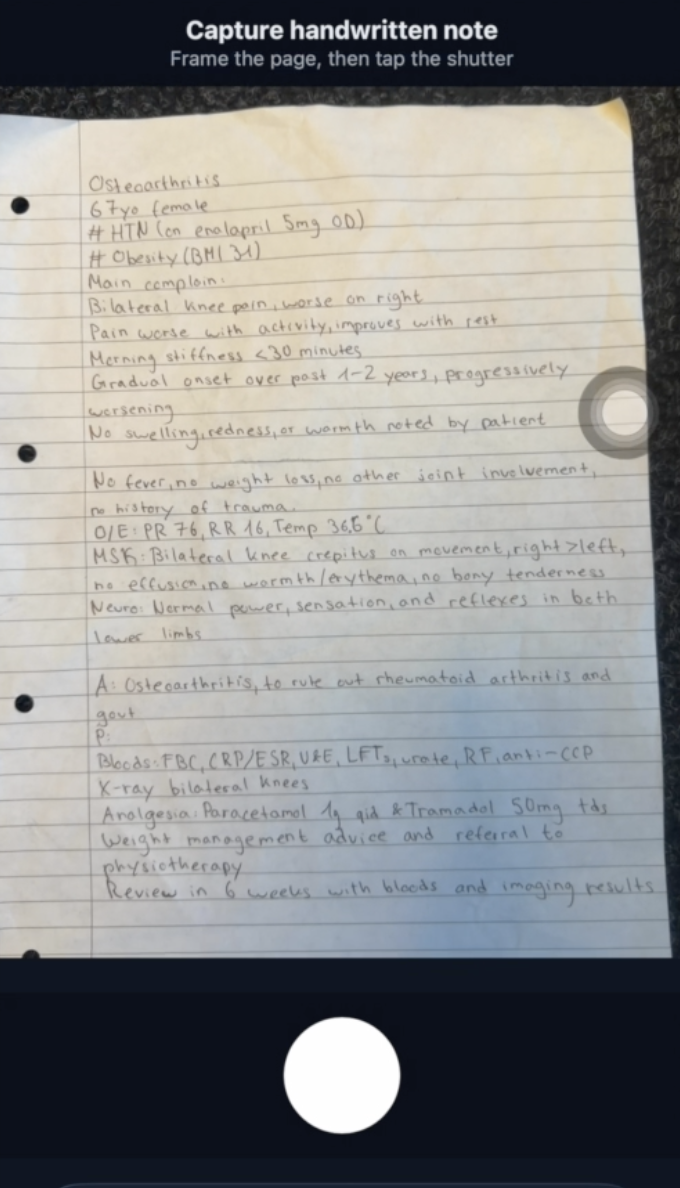 Capture handwritten note
Frame the page, then tap the shutter
Osteoarthritis
67yo female
# HTN (on enalapril 5mg OD)
# Obesity (BMI 31)
Main complain:
Bilateral knee pain, worse on right
Pain worse with activity, improves with rest
Morning stiffness <30 minutes
Gradual onset over past 1-2 years, progressively
worsening
No swelling, redness, or warmth noted by patient
No fever, no weight loss, no other joint involvement,
no history of trauma.
O/E: PR 76, RR 16, Temp 36.6°C
MSK: Bilateral knee crepitus on movement, right > left,
no effusion, no warmth/erythema, no bony tenderness
Neuro: Normal power, sensation, and reflexes in both
lower limbs
A: Osteoarthritis, to rule out rheumatoid arthritis and
gout
P:
Bloods: FBC, CRP/ESR, U&E, LFTs, urate, RF, anti-CCP
X-ray bilateral knees
Analgesia: Paracetamol 1g qid & Tramadol 50mg tds
Weight management advice and referral to
physiotherapy
Review in 6 weeks with bloods and imaging results